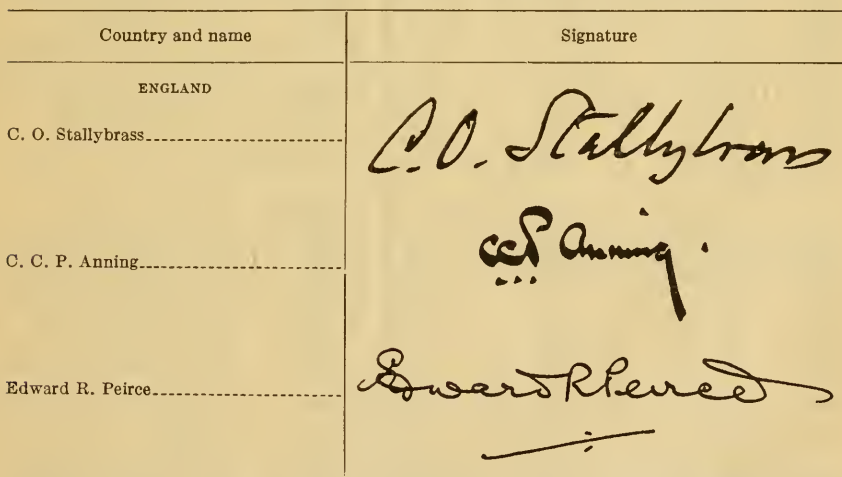 Country and name Signature
ENGLAND
C. O. Stallybrass C. O. Stallybrass
C. C. P. Anning CCP Anning.
Edward R. Peirce Edward R Peirce